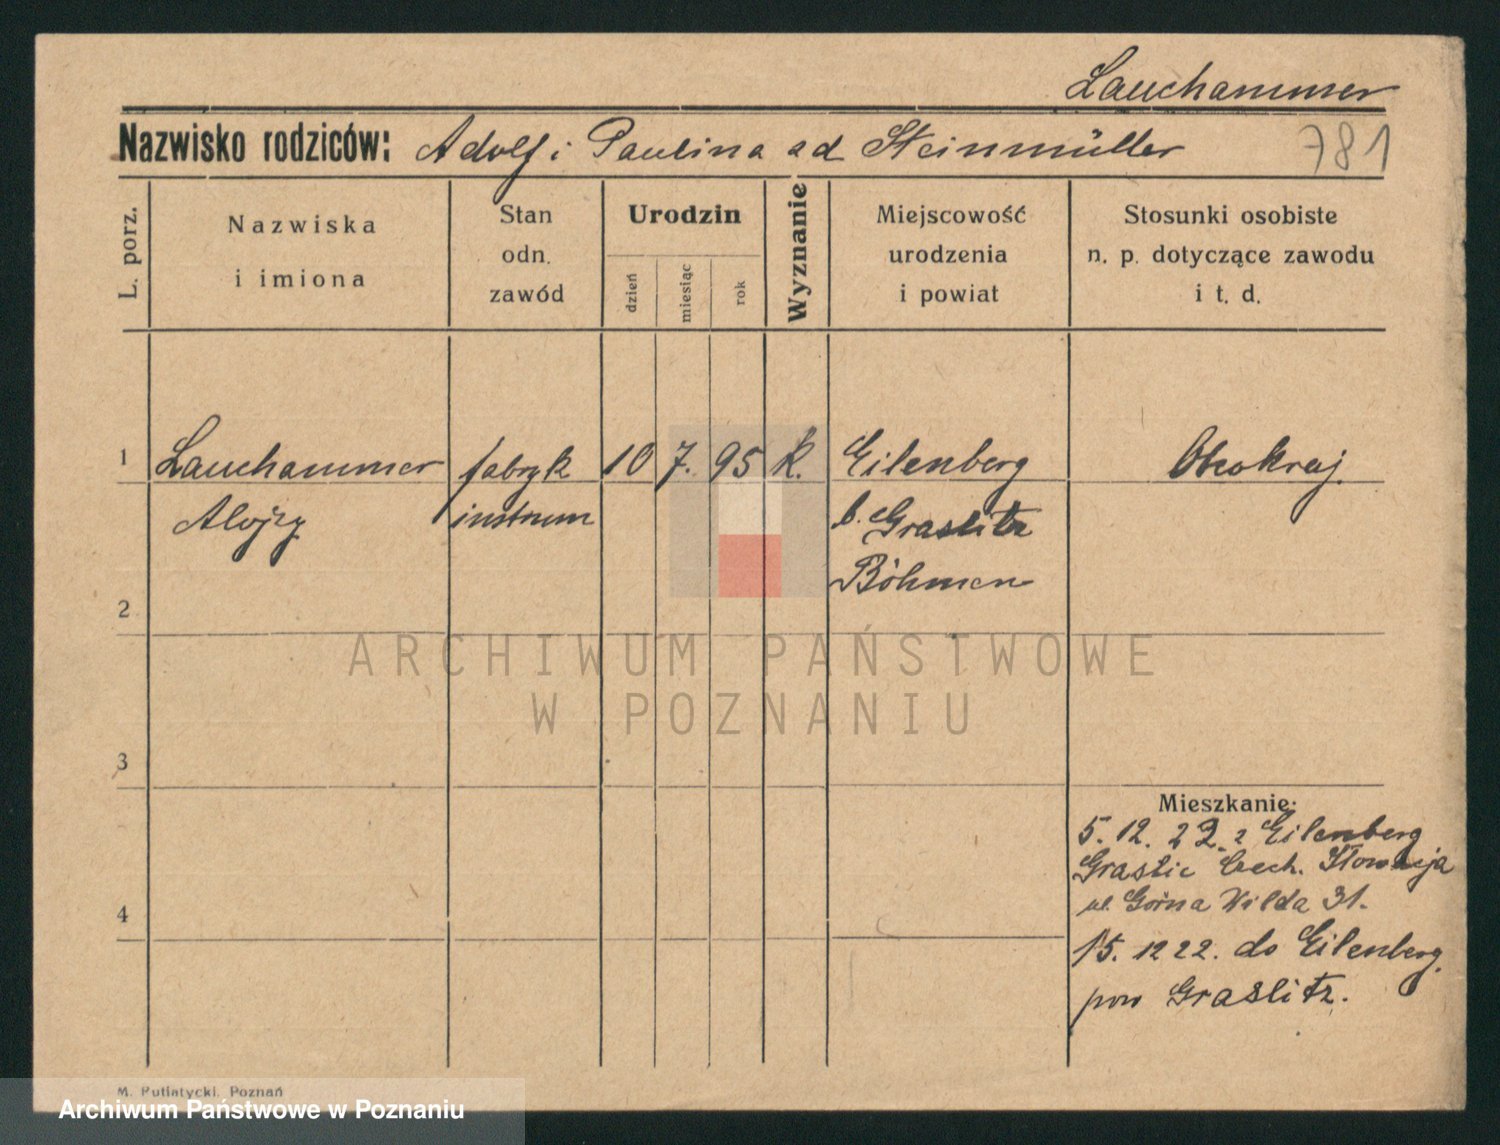 Lauchammer
Nazwisko rodziców: Adolf i Paulina ad Steinmüller 781
L. porz.
Nazwiska
i imiona
Stan
odn.
zawód
Urodzin
dzień
miesiąc
rok
Wyznanie
Miejscowość
urodzenia
i powiat
Stosunki osobiste
n. p. dotyczące zawodu
i t. d.
1 Lauchammer fabryk 10 7. 95 k. Eilenberg Obcokraj.
Alojzy instrum b. Graslitz
Böhmen
2
ARCHIWUM PAŃSTWOWE
W POZNANIU
3
Mieszkanie:
5. 12. 22. z Eilenberg
Graslic Czech. Słowacja
4 ul. Górna Wilda 31.
15. 12 22. do Eilenberg.
pow Graslitz.
M. Putiatycki, Poznań
Archiwum Państwowe w Poznaniu